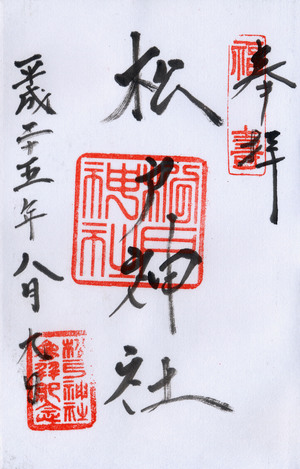 奉拝
松戸神社
松戸神社
平成二十五年八月九日
松戸神社
参拝記念